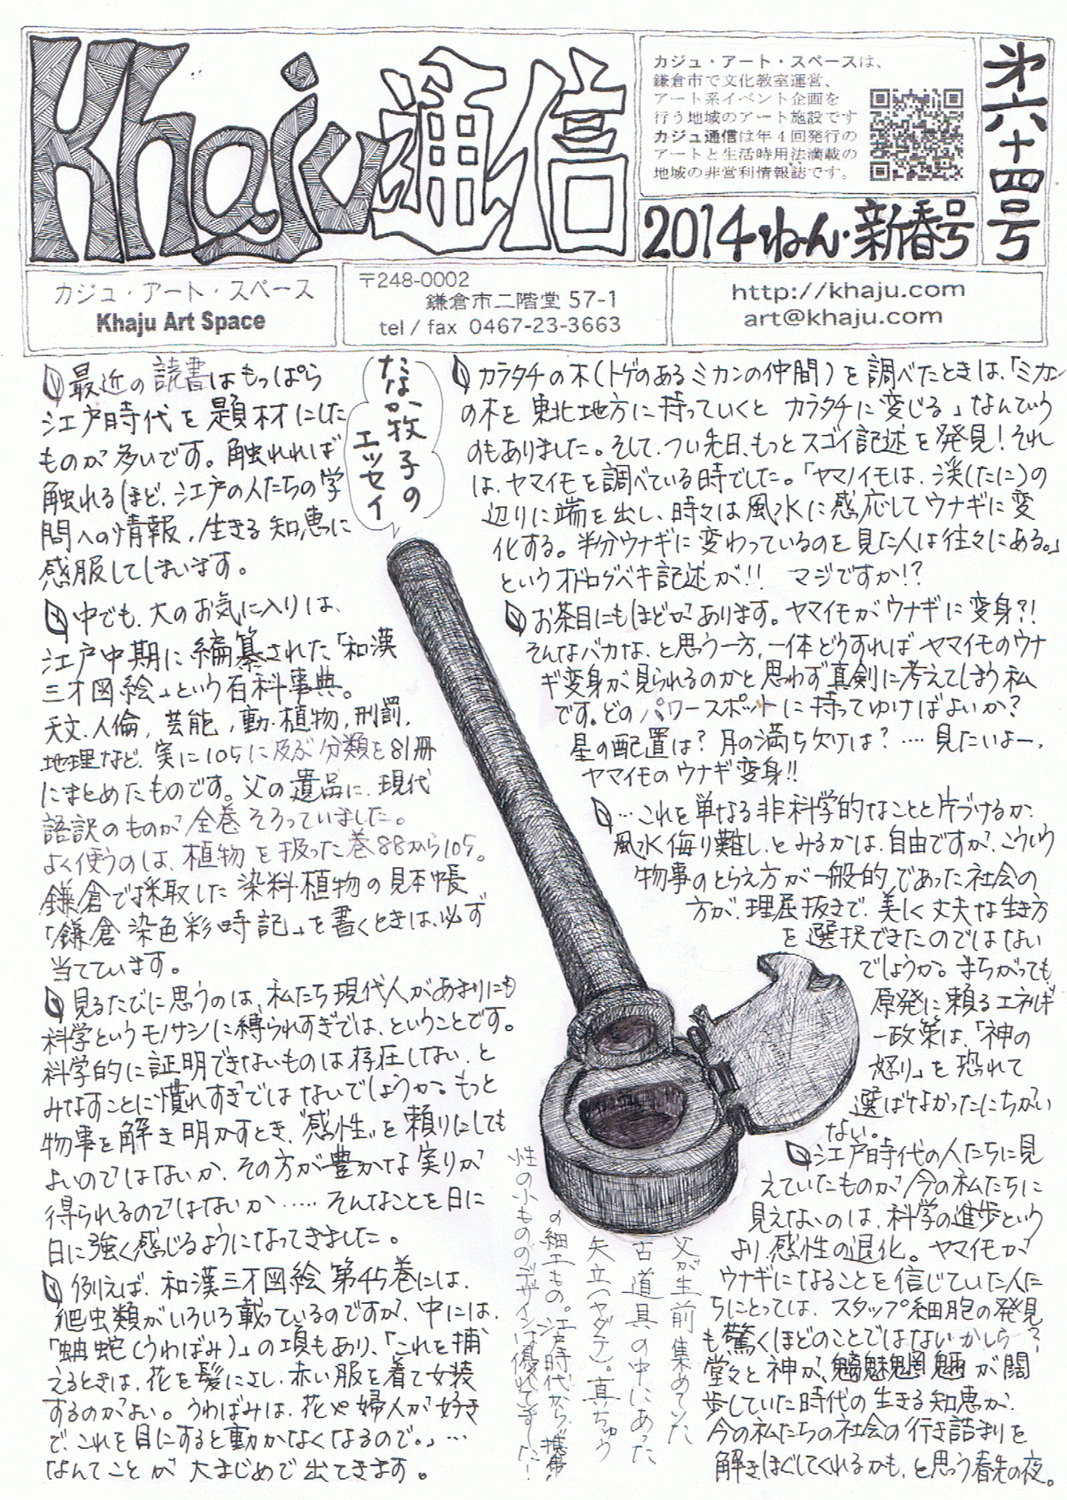 Khaju通信
カジュ・アート・スペースは、
鎌倉市で文化教室運営、
アート系イベント企画を
行う地域のアート施設です
カジュ通信は年4回発行の
アートと生活時用法満載の
地域の非営利情報誌です。
才六十四号
2014ねん・新春号
カジュ・アート・スペース
Khaju Art Space
〒248-0002
鎌倉市二階堂 57-1
tel / fax 0467-23-3663
http://khaju.com
art@khaju.com
たなか牧子の
エッセイ
最近の読書はもっぱら
江戸時代を題材にした
ものが多いです。触れれば
触れるほど、江戸の人たちの学
問への情報、生きる知恵に
感服してしまいます。
中でも、大のお気に入りは、
江戸中期に編纂された「和漢
三才図絵」という百科事典。
天文、人倫、芸能、動・植物、刑罰、
地理など、実に105に及ぶ分類を81冊
にまとめたものです。父の遺品に、現代
語訳のものが全巻そろっていました。
よく使うのは、植物を扱った巻88から105。
鎌倉で採取した染料植物の見本帳
「鎌倉染色彩時記」を書くときは、必ず
当てています。
見るたびに思うのは、私たち現代人があまりにも
科学というモノサシに縛られすぎでは、ということです。
科学的に証明できないものは存在しない、と
みなすことに慣れすぎではないでしょうか。もっと
物事を解き明かすとき、"感性"を頼りにしても
よいのではないか、その方が豊かな実りが
得られるのではないか……そんなことを日に
日に強く感じるようになってきました。
例えば、和漢三才図絵 第45巻には、
爬虫類がいろいろ載っているのですが、中には、
「蚺蛇(うわばみ)」の項もあり、「これを捕
えるときは、花を髪にさし、赤い服を着て女装
するのがよい。うわばみは、花や婦人が好き
で、これを目にすると動かなくなるので。」…
なんてことが大まじめで出てきます。
カラタチの木(トゲのあるミカンの仲間)を調べたときは、「ミカン
の木を東北地方に持っていくとカラタチに変じる」なんていう
のもありました。そして、つい先日、もっとスゴイ記述を発見!それ
は、ヤマイモを調べている時でした。「ヤマノイモは、渓(たに)の
辺りに端を出し、時々は風水に感応してウナギに変
化する。半分ウナギに変わっているのを見た人は往々にある。」
というオドロクベキ記述が!! マジですか!?
お茶目にもほどがあります。ヤマイモがウナギに変身?!
そんなバカな、と思う一方、一体どうすればヤマイモのウナ
ギ変身が見られるのかと思わず真剣に考えてしまう私
です。どのパワースポットに持ってゆけばよいか?
星の配置は?月の満ち欠けは?…見たいよー、
ヤマイモのウナギ変身!!
…これを単なる非科学的なことと片づけるか、
風水侮り難し、とみるかは、自由ですが、こういう
物事のとらえ方が一般的であった社会の
方が、理屈抜きで、美しく丈夫な生き方
を選択できたのではない
でしょうか。まちがっても、
原発に頼るエネルギ
ー政策は、「神の
怒り」を恐れて
選ばなかったにちがい
ない。
江戸時代の人たちに見
えていたものが今の私たちに
見えないのは、科学の進歩という
より、感性の退化。ヤマイモが
ウナギになることを信じていた人た
ちにとっては、スタップ細胞の発見
も驚くほどのことではないかしら?
堂々と神が、魑魅魍魎が闊
歩していた時代の生きる知恵が、
今の私たちの社会の行き詰まりを
解きほぐしてくれるかも、と思う春先の夜。
父が生前集めていた
古道具の中にあった
矢立(ヤダテ)。真ちゅう
の細工もの。江戸時代から、携帯
性の小もののデザインは優れてました!